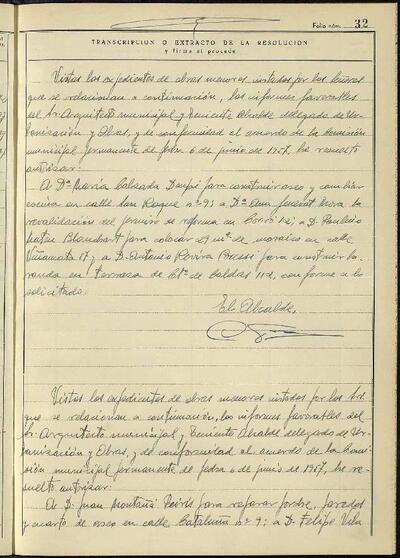 Folio núm. 32
TRANSCRIPCION O EXTRACTO DE LA RESOLUCION
y firma si procede
Vistos los expedientes de obras menores instados por los
que se relacionan a continuación, los informes favorables
del Sr. Arquitecto municipal y Teniente Alcalde delegado de Ur-
banización y Obras, y de conformidad al acuerdo de la Comisión
municipal permanente de fecha 6 de junio de 1967, he resuelto
autorizar:
A Dª María Calzada para construir aseo y cambiar
escalera en calle San Roque nº 93 a Dª Ana
revalidación del permiso de reforma en a D.
Mateu Blanchart para colocar m² de mosaico en calle
Viñamata 17 y a D. Antonio Rovira para construir ba-
randa en terraza de Ctª de Caldas 112, conforme a lo
solicitado.
El Alcalde,
Vistos los expedientes de obras menores instados por los Sres.
que se relacionan a continuación, los informes favorables del
Sr. Arquitecto municipal, y Teniente Alcalde delegado de Ur-
banización y Obras, y de conformidad al acuerdo de la Comi-
sión municipal permanente de fecha 6 de junio de 1967, he re-
suelto autorizar:
A D. Juan Montañá para reparar paredes
y cuarto de aseo en calle Cataluña nº 9; a D. Felipe Vila